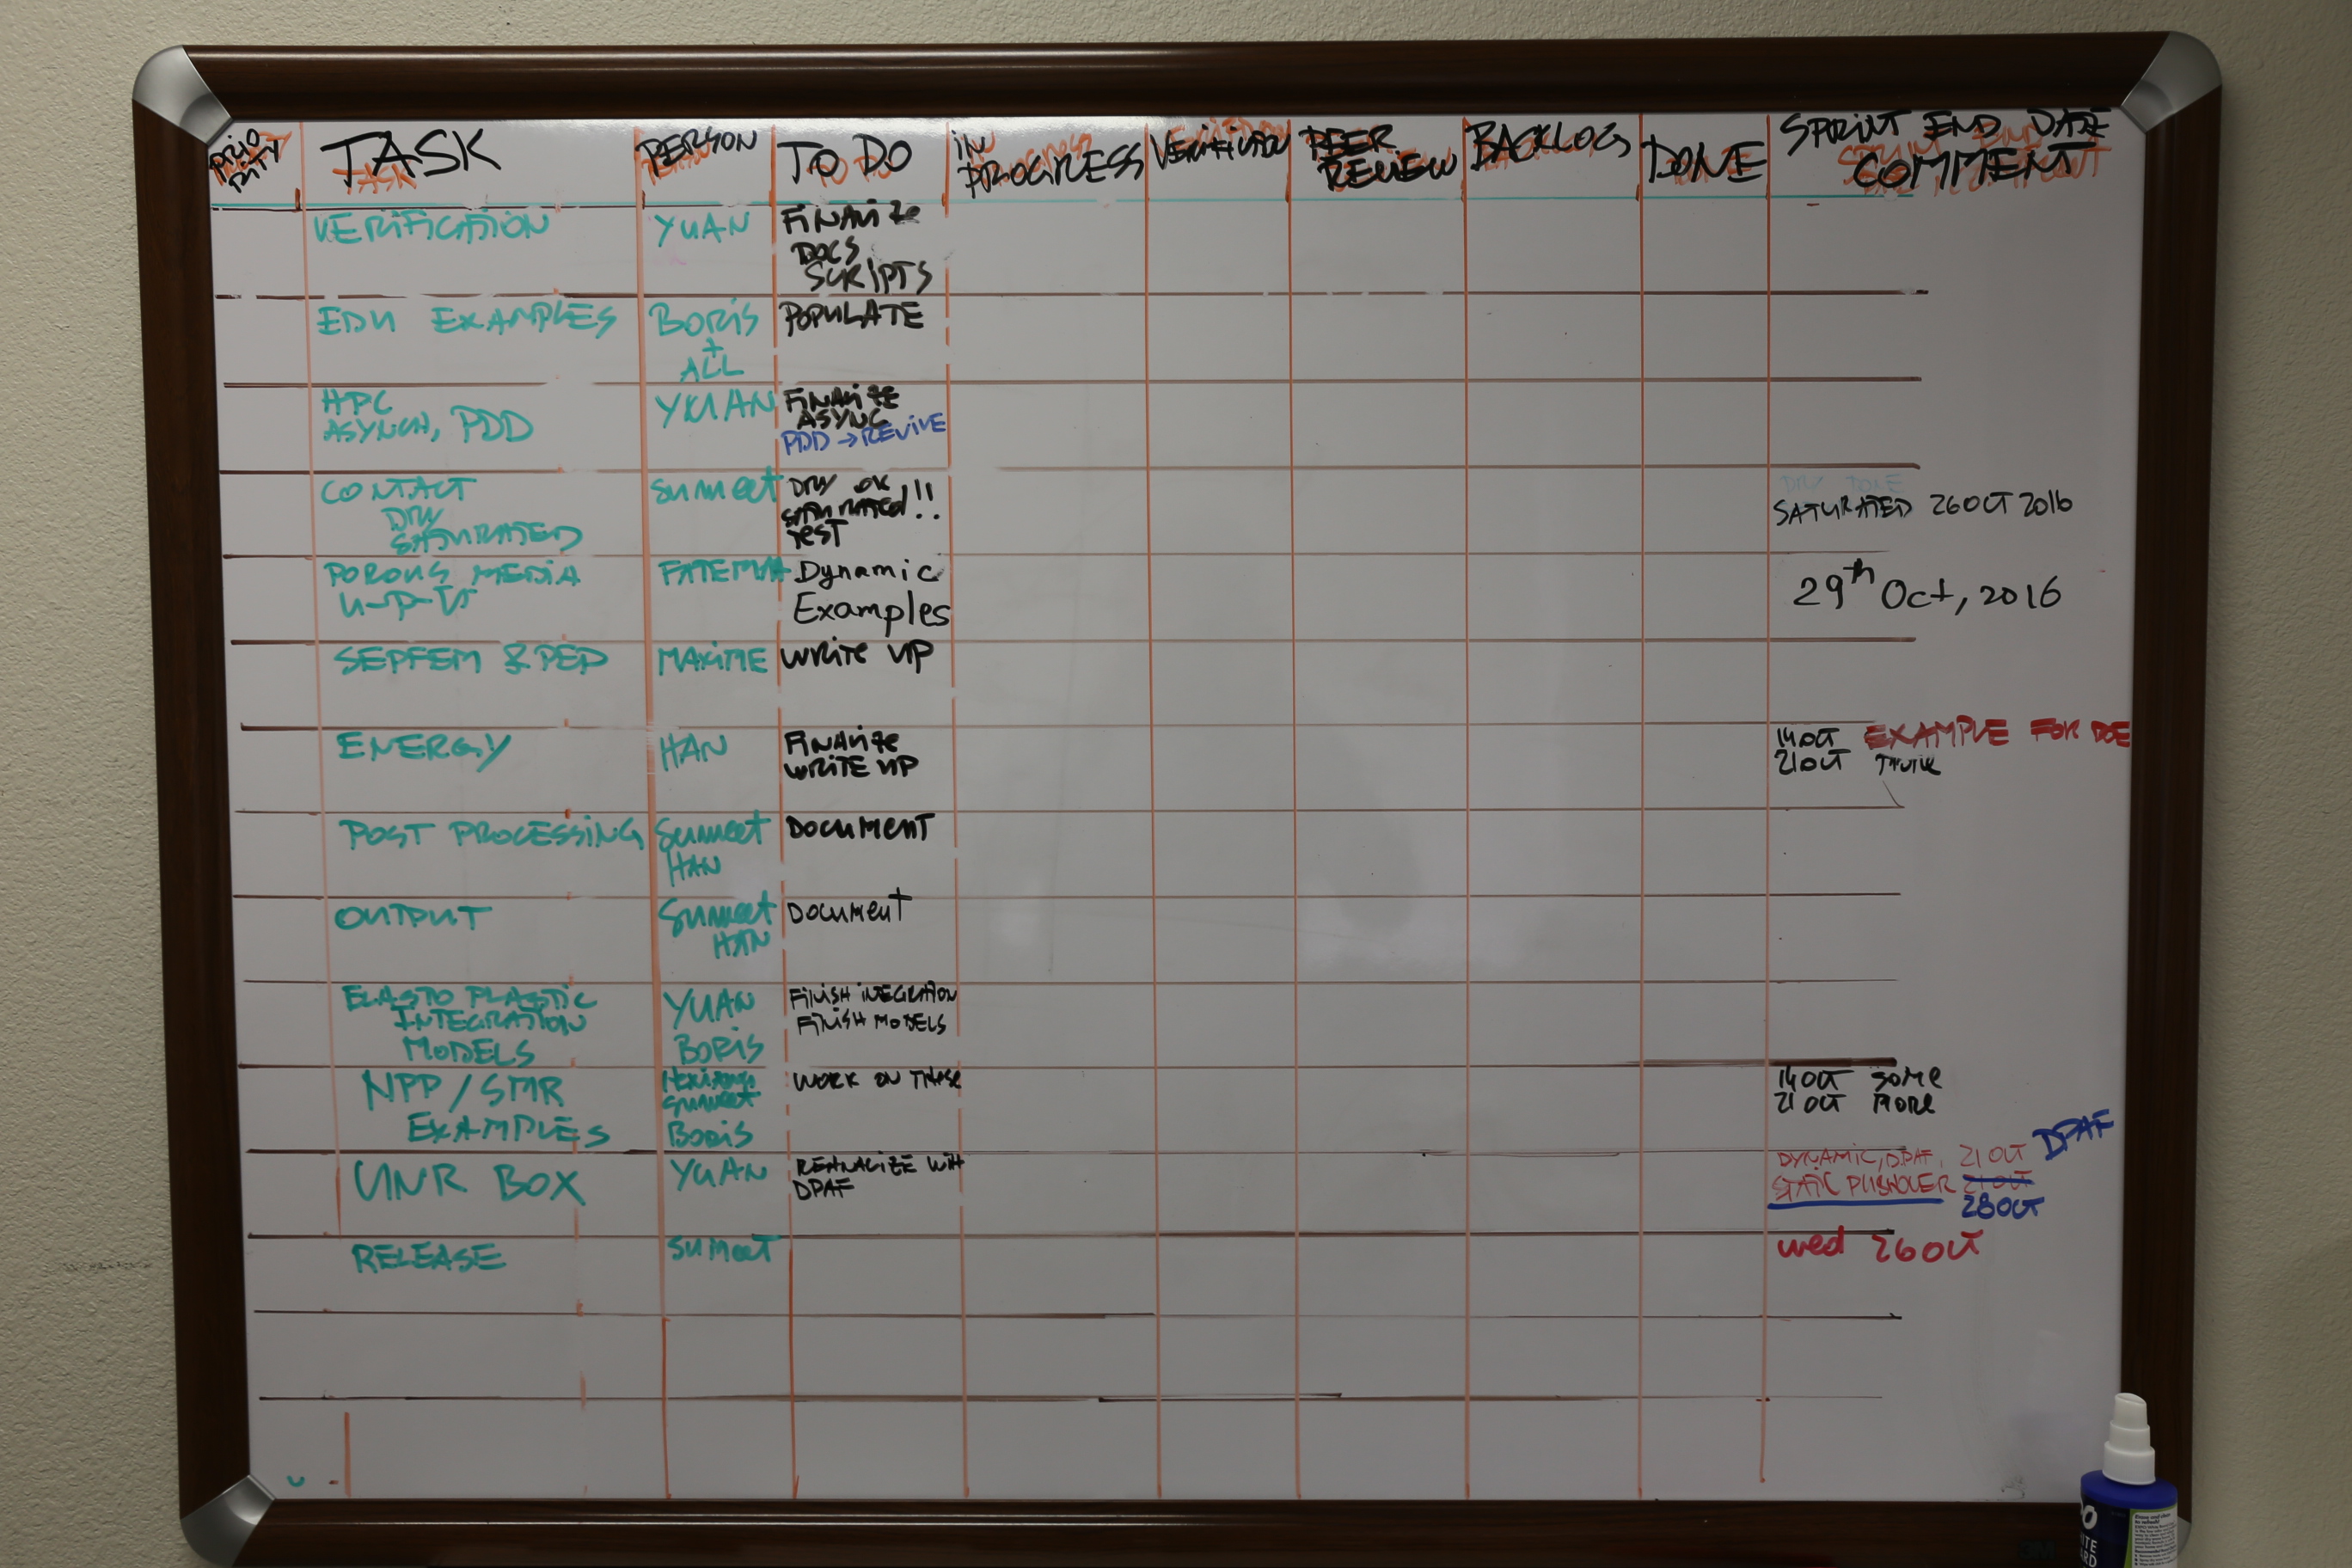 PRIO RITY
TASK
PERSON
TO DO
IN PROGRESS
VERIFICATION
PEER REVIEW
BACKLOG
DONE
SPRINT END DATE
COMMENT
VERIFICATION
YUAN
FINALIZE
DOCS
SCRIPTS
EDU EXAMPLES
BORIS
+
ALL
POPULATE
HPC
ASYNCH, PDD
YUAN
FINALIZE
ASYNC
PDD → REVIVE
CONTACT
DRY
SATURATED
SUMEET
DRY OK
SATURATED!!
TEST
DRY DONE
SATURATED 26 OCT 2016
POROUS MEDIA
u-p-U
FATEMAH
Dynamic
Examples
29th Oct, 2016
SEPFEM & PED
MAXIME
WRITE UP
ENERGY
HAN
FINALIZE
WRITE UP
14 OCT EXAMPLE FOR DOE
21 OCT
POST PROCESSING
SUMEET
HAN
DOCUMENT
OUTPUT
SUMEET
HAN
DOCUMENT
ELASTO PLASTIC
INTEGRATION
MODELS
YUAN
BORIS
FINISH INTEGRATION
FINISH MODELS
NPP/SMR
EXAMPLES
SUMEET
BORIS
WORK ON THESE
14 OCT SOME
21 OCT MORE
UNR BOX
YUAN
REANALIZE WITH
DPAF
DYNAMIC, DPAF, 21 OCT DPAF
STATIC PUSHOVER 21 OCT
28 OCT
RELEASE
SUMEET
wed 26 OCT